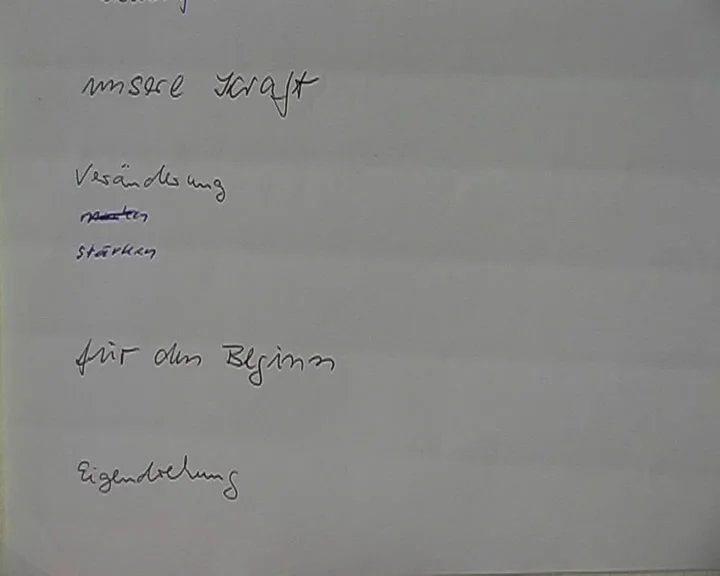 unsere Kraft
Veränderung
stärken
für den Beginn
Eigendrehung